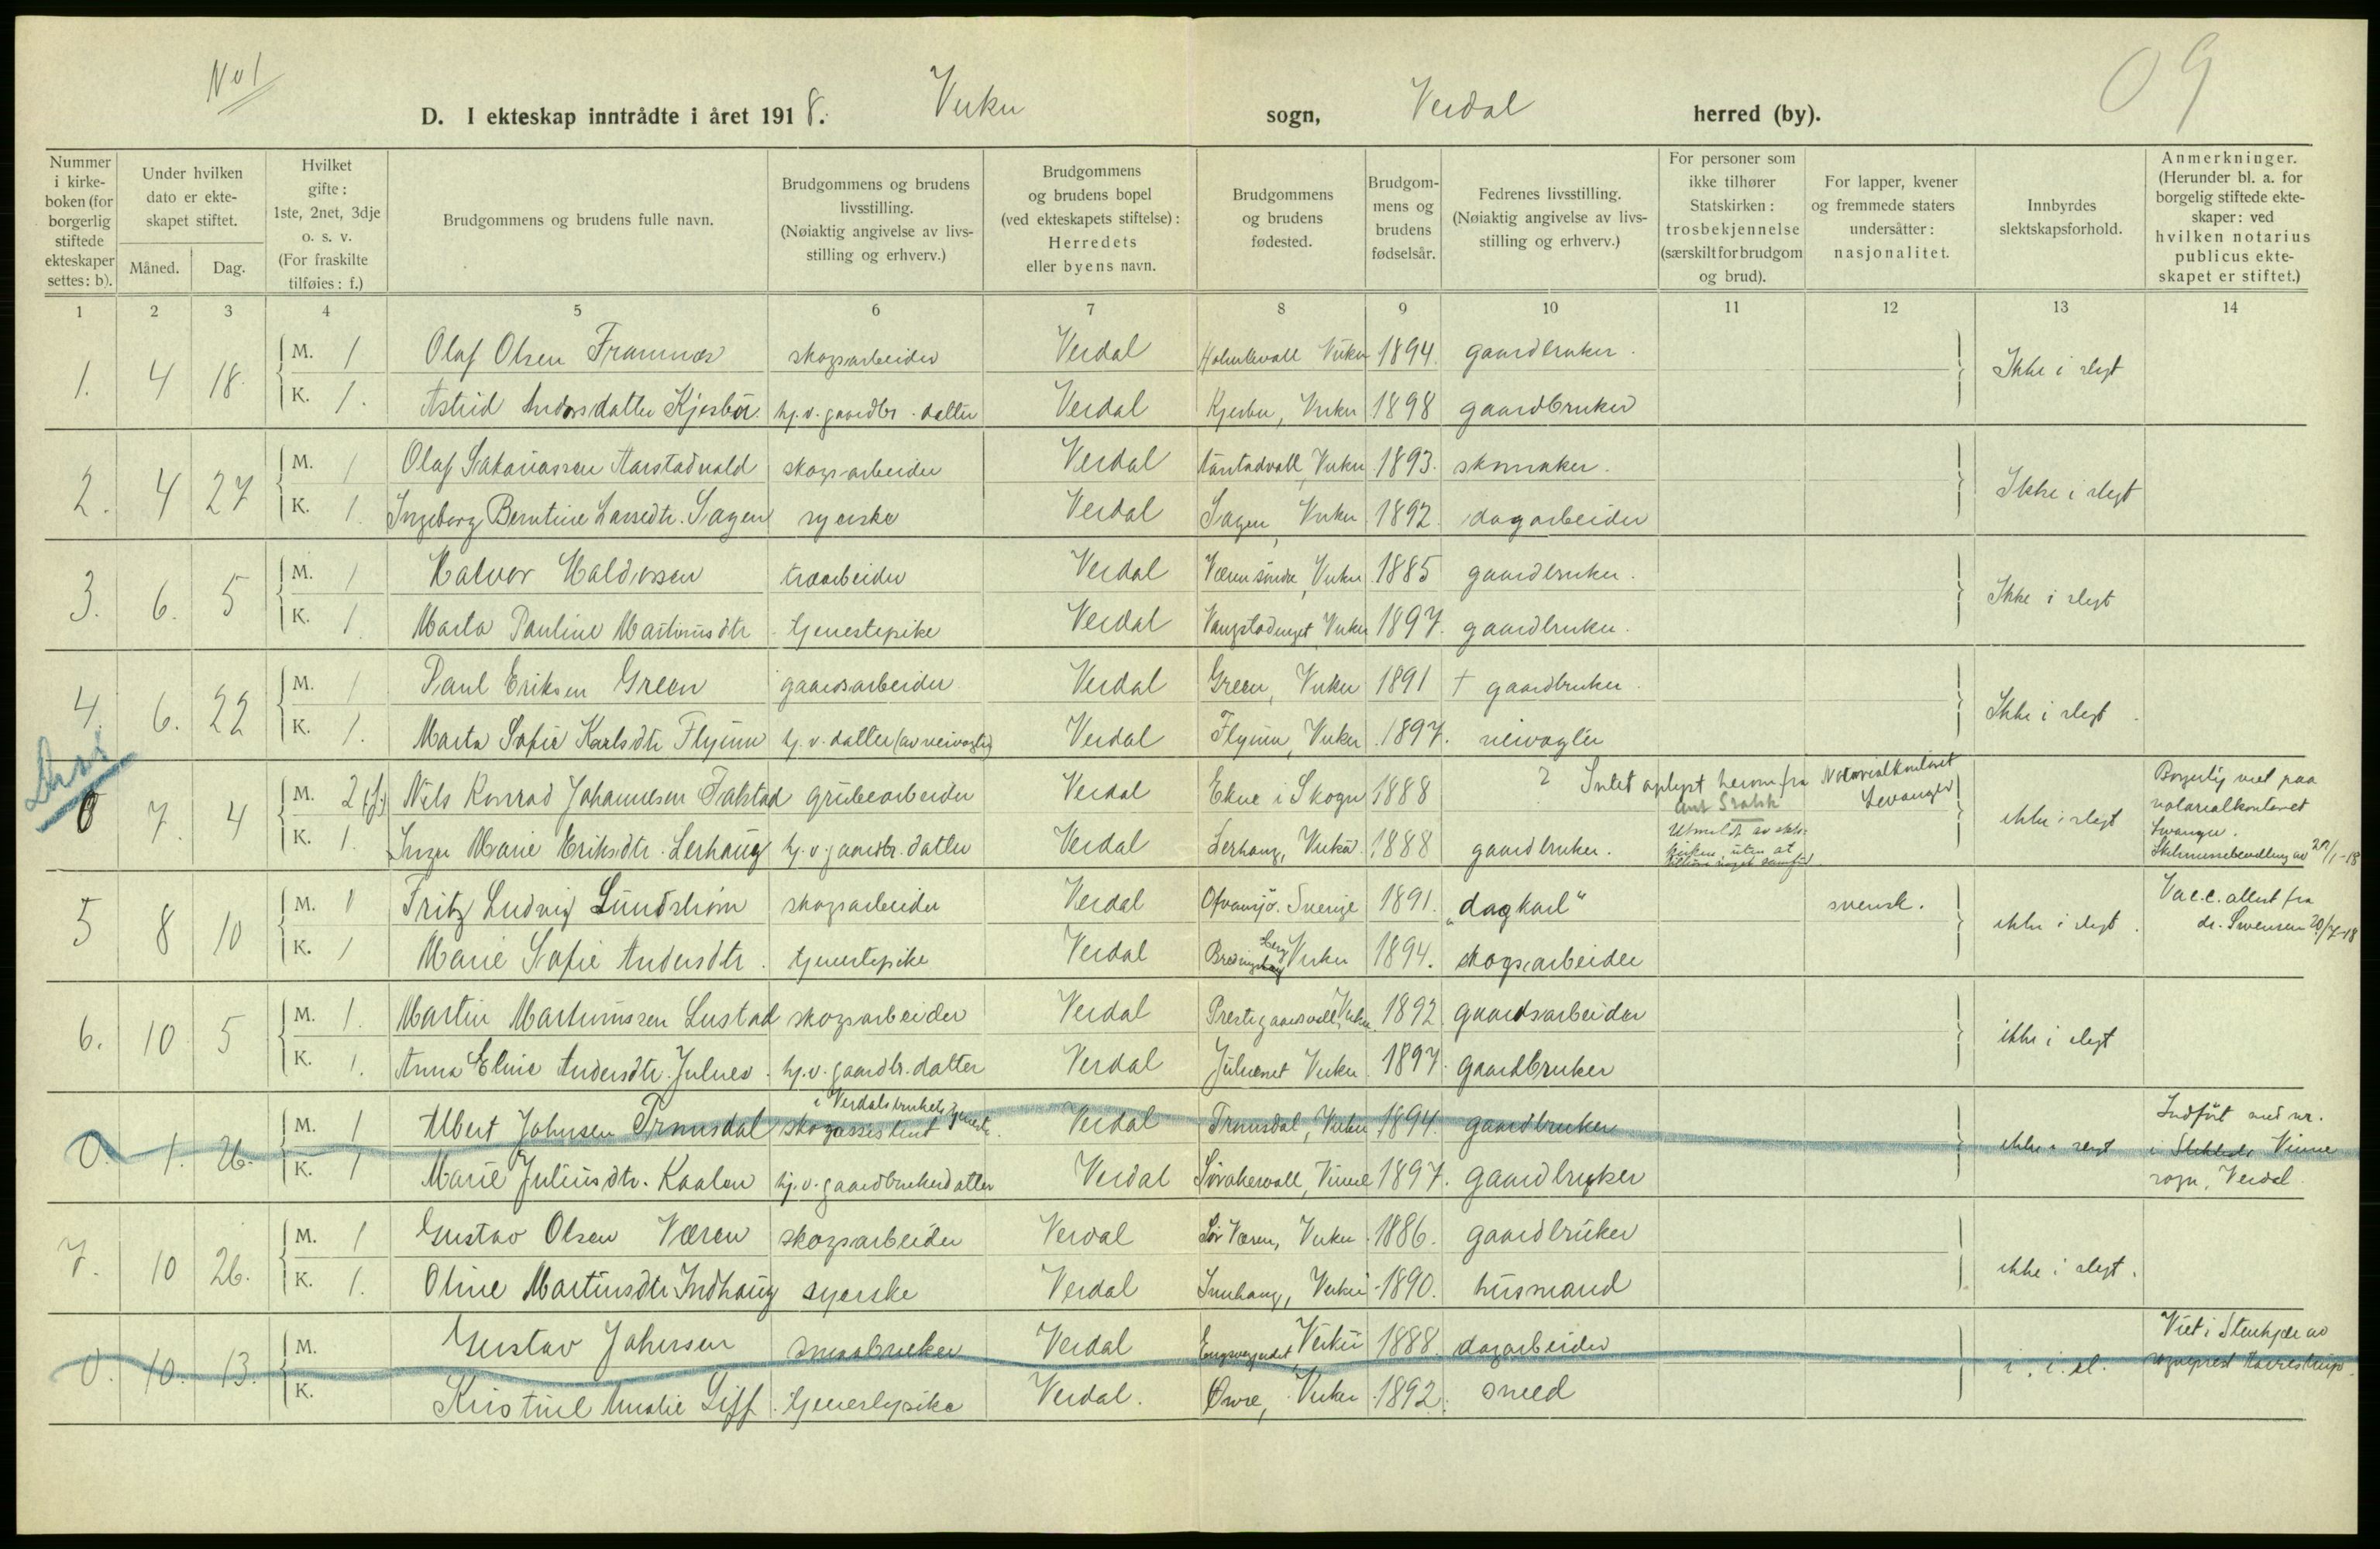 No 1
09
D. I ekteskap inntrådte i året 1918. Vuku sogn, Verdal herred (by).
Nummer i kirkeboken (for borgerlig stiftede ekteskaper settes: b).
Under hvilken dato er ekteskapet stiftet.
Måned. Dag.
Hvilket gifte: 1ste, 2net, 3dje o. s. v. (For fraskilte tilføies: f.)
Brudgommens og brudens fulle navn.
Brudgommens og brudens livsstilling. (Nøiaktig angivelse av livsstilling og erhverv.)
Brudgommens og brudens bopel (ved ekteskapets stiftelse): Herredets eller byens navn.
Brudgommens og brudens fødested.
Brudgommens og brudens fødselsår.
Fedrenes livsstilling. (Nøiaktig angivelse av livsstilling og erhverv.)
For personer som ikke tilhører Statskirken: trosbekjennelse (særskilt for brudgom og brud).
For lapper, kvener og fremmede staters undersåtter: nasjonalitet.
Innbyrdes slektskapsforhold.
Anmerkninger. (Herunder bl. a. for borgelig stiftede ekteskaper: ved hvilken notarius publicus ekteskapet er stiftet.)
1 2 3 4 5 6 7 8 9 10 11 12 13 14
1. 4 18. M. 1 Olaf Olsen Framnes skogsarbeider Verdal Vuku 1894. gaardbruker. Ikke i slegt
K. 1. Astrid Andersdatter Kjesbu hj. v. gaardbr. datter Verdal Kjesbu, Vuku 1898 gaardbruker
2. 4 27 M. 1 Olaf Sakariassen Aarstadvald skogsarbeider Verdal Aarstadvall, Vuku 1893. skomaker. Ikke i slegt
K. 1. Ingeborg Berntine Larsdtr. Sagen syerske Verdal Sagen, Vuku 1892. dagarbeider
3. 6. 5 M. 1 Halvor Haldorsen træarbeider Verdal Væren søndre, Vuku 1885 gaardbruker. Ikke i slegt
K. 1. Marta Pauline Martinusdtr. tjenestepike Verdal Vangstadenget, Vuku 1897. gaardbruker.
4. 6. 22 M. 1 Paul Eriksen Green gaardsarbeider Verdal Green, Vuku 1891 † gaardbruker. Ikke i slegt.
K. 1. Marta Sofie Karlsdtr. Flyum hj. v. datter (av veivogter) Verdal Flyum, Vuku 1897. veivogter
0 7. 4 M. 2 (f.) Nils Konrad Johannesen Falstad grubearbeider Verdal Ekne i Skogn 1888 ? Intet oplyst herom fra Notarialkontoret Levanger ikke i slegt Borgerlig viet paa notarialkontoret Levanger.
K. 1. Inger Marie Eriksdtr. Lerhaug hj. v. gaardbr. datter Verdal Lerhaug, Vuku 1888 gaardbruker. Utmeldt av stats-kirken uten at Skilsmissebevilling av 29/1-18
5 8 10 M. 1 Fritz Ludvig Lundstrøm skogsarbeider Verdal Ofvansjö. Sverige 1891. „dagkarl" svensk. ikke i slegt. Vacc. attest fra dr. Svensen 20/7-18
K. 1 Marie Sofie Andersdtr. tjenestepike Verdal Vuku 1894. skogsarbeider
6. 10 5 M. 1. Martin Martinussen Lustad skogsarbeider Verdal Prestegaardsvall, Vuku. 1892. gaardsarbeider ikke i slegt
K. 1. Anna Eline Andersdtr. Julnes. hj. v. gaardbr. datter Verdal Julneset Vuku 1897. gaardbruker
0. 1. 26. M. 1 Albert Johnsen Tromsdal skogassistent i Verdalsbrukets tjeneste. Verdal Tromsdal, Vuku 1894. gaardbruker ikke i slegt Indført med nr. i Vinne sogn, Verdal
K. 1 Marie Juliusdtr. Kaalen hj. v. gaardbrukerdatter Verdal Sørakervall, Vinne 1897. gaardbruker
7. 10 26. M. 1 Gustav Olsen Væren skogsarbeider Verdal Sør Væren, Vuku 1886. gaardbruker ikke i slegt.
K. 1. Oline Martinsdtr. Indhaug syerske Verdal Innhaug, Vuku 1890. husmand
0. 10. 13. M. Gustav Johnsen smaabruker Verdal Vuku 1888. dagarbeider i. i. sl. Viet i Stenkjær av sogneprest
K. Kristine Amalie Siff tjenestepike Verdal. Øvre, Vuku 1892. smed